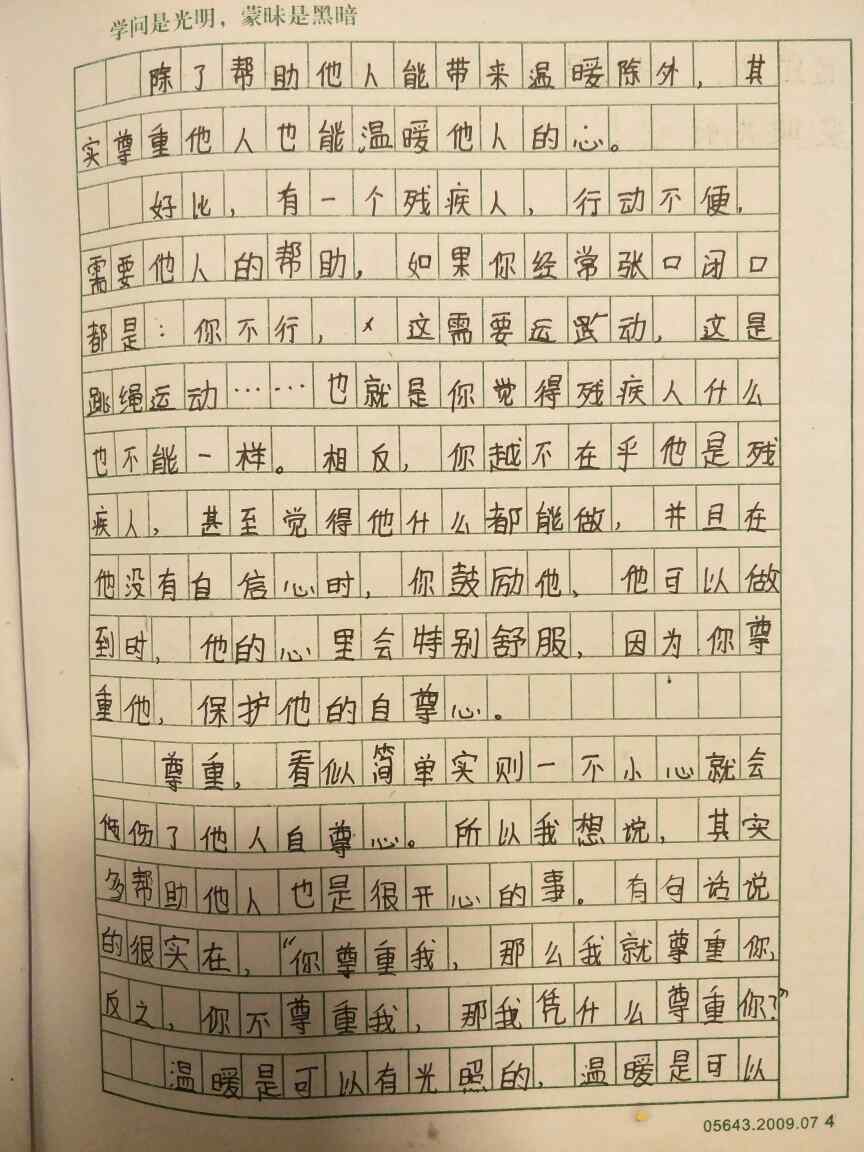 学问是光明，蒙昧是黑暗
除了帮助他人能带来温暖除外，其
实尊重他人也能温暖他人的心。
好比，有一个残疾人，行动不便，
需要他人的帮助，如果你经常张口闭口
都是：你不行，这需要运动，这是
跳绳运动……也就是你觉得残疾人什么
也不能一样。相反，你越不在乎他是残
疾人，甚至觉得他什么都能做，并且在
他没有自信心时，你鼓励他，他可以做
到时，他的心里会特别舒服，因为你尊
重他，保护他的自尊心。
尊重，看似简单实则一不小心就会
伤了他人自尊心。所以我想说，其实
多帮助他人也是很开心的事。有句话说
的很实在，“你尊重我，那么我就尊重你，
反之，你不尊重我，那我凭什么尊重你？”
温暖是可以有光照的，温暖是可以
05643.2009.07 4